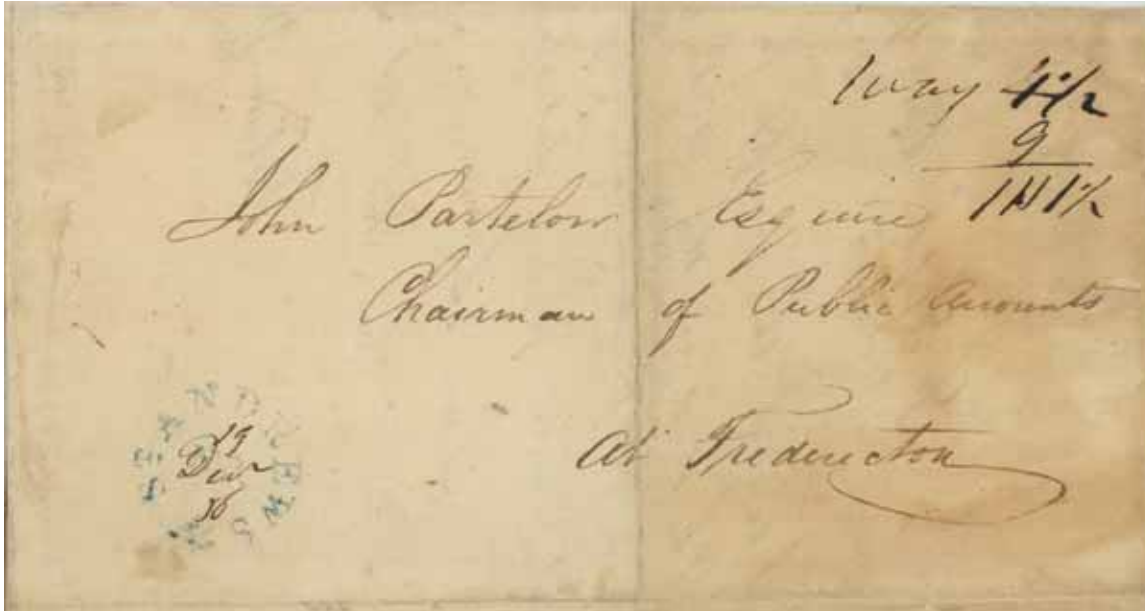 Way 4½
9
1/1½
John Partelow Esquire
Chairman of Public Accounts
At Fredericton
ST ANDREWS NB
19
Decr
36